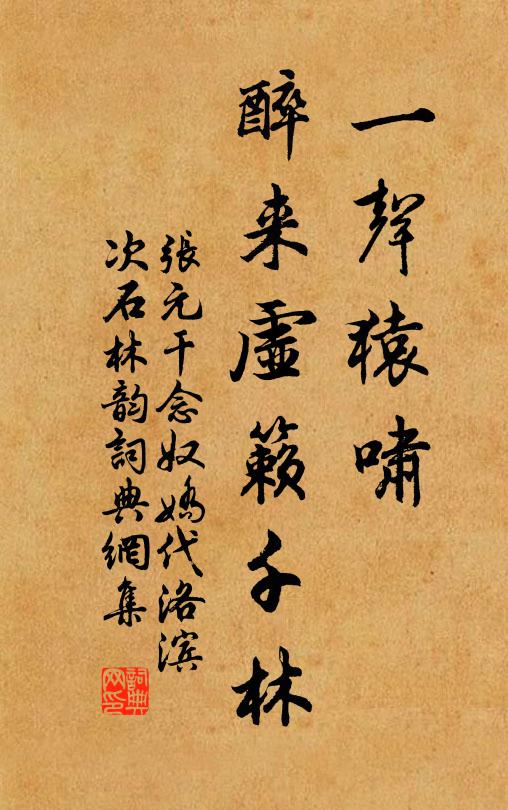 一聲猿嘯
醉来虚籁千林
張元干念奴嬌代洛滨
次石林韵詞典網集
詞典网印